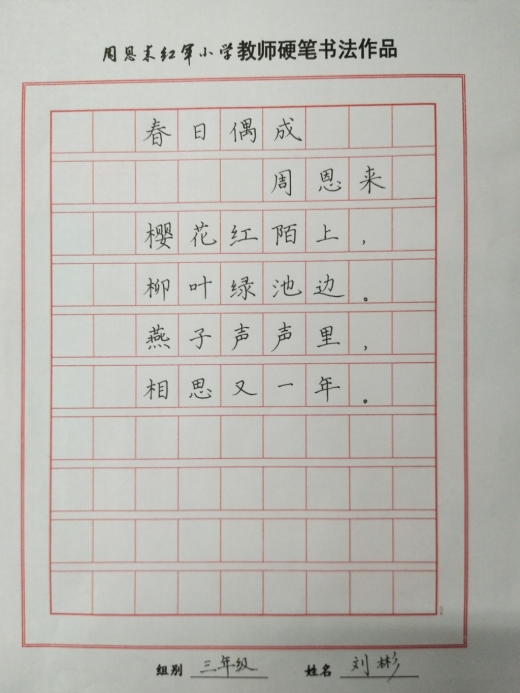 周恩来红军小学教师硬笔书法作品
春日偶成
周恩来
樱花红陌上，
柳叶绿池边。
燕子声声里，
相思又一年。
组别 三年级 姓名 刘彬